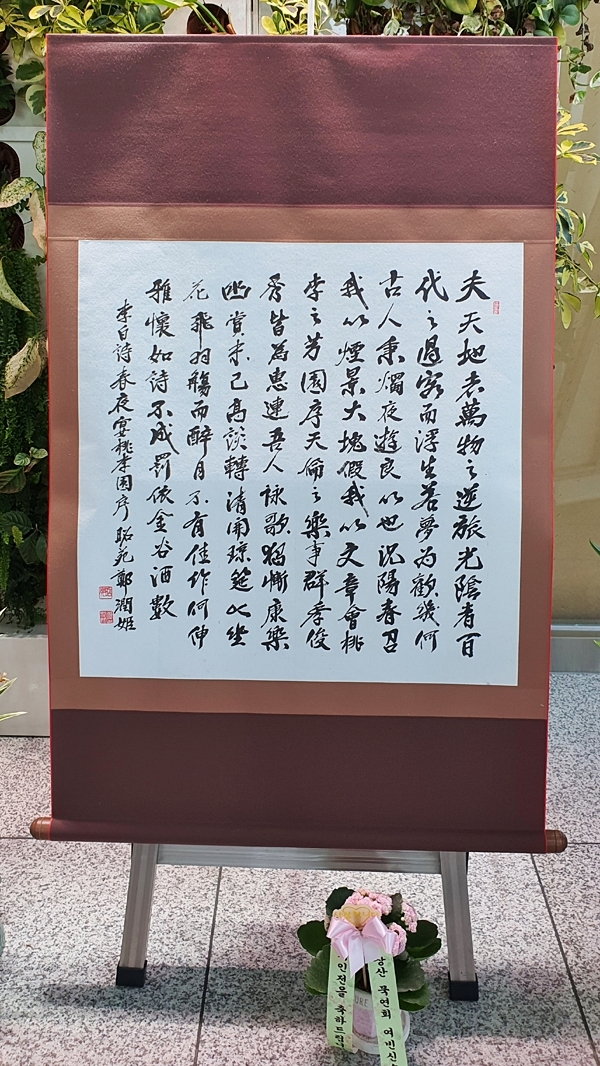 夫天地者萬物之逆旅光陰者百
代之過客而浮生若夢为歡幾何
古人秉燭夜遊良以也况陽春召
我以煙景大塊假我以文章會桃
李之芳園序天倫之樂事群季俊
秀皆為惠連吾人詠歌獨慚康樂
幽賞未已高談轉清開瓊筵以坐
花飛羽觴而醉月不有佳作何伸
雅懷如詩不成罰依金谷酒數
李白诗春夜宴桃李園序 鄭潤姬
인전을 축하드립
묵연회 여빈신